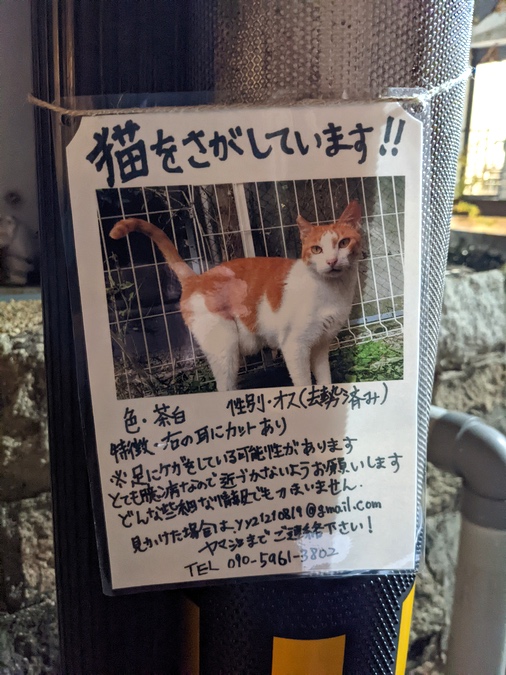 猫をさがしています!!
色・茶白 性別・オス(去勢済み)
特徴・右の耳にカットあり
※足にケガをしている可能性があります
とても臆病なので近づかないようお願いします
どんな些細な情報でもかまいません.
見かけた場合は、yyz1210819@gmail.com
までご連絡下さい!
TEL 090-5961-3802